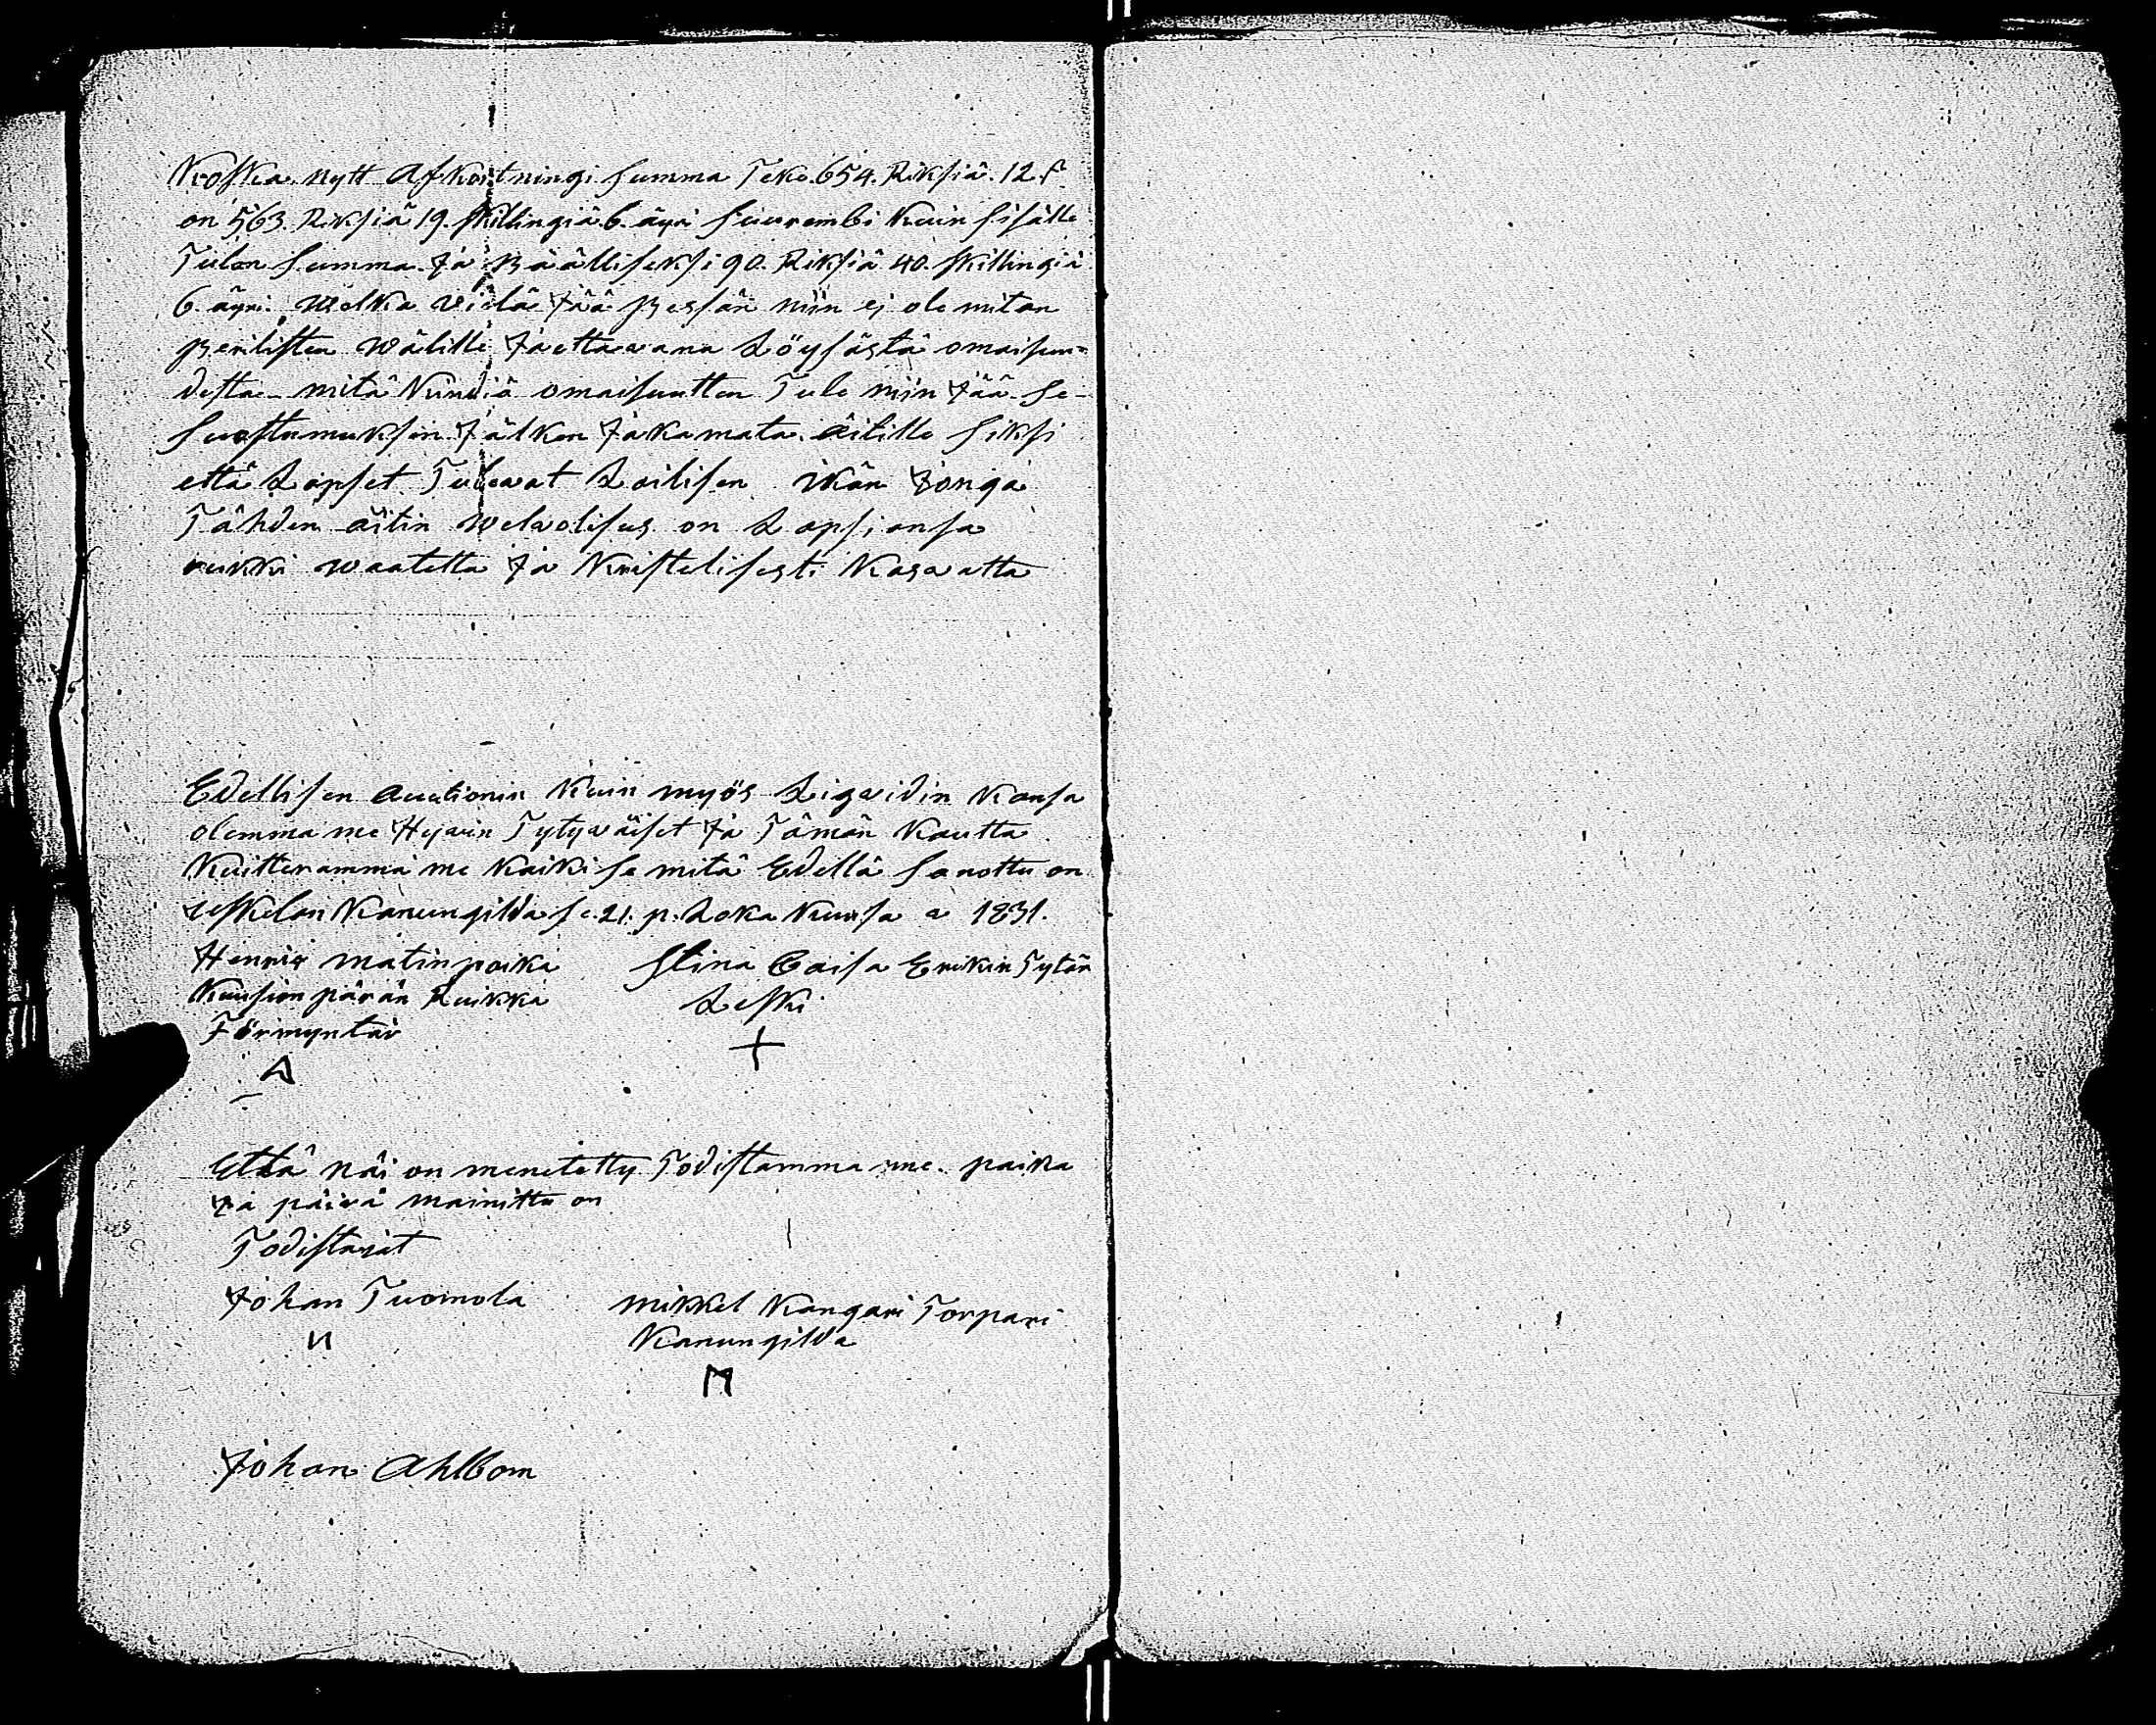 Koska nytt Afkortningi Summa Teke 654. Riksiä. 12 s
on 563. Riksiä 19. Skillingiä 6. äyri Suurembi Kuin Sisälle
Tulon Summa Ja Päälliseksi 90. Riksiä 40. Skillingiä
6. äyri. Welka vielä Jää Pessän niin ej ole mitän
Perilisten Wälille Jaettawana Löysästä omaisuu=
desta mitä Kindiä omaisuutten Tule niin Jää Se
Suostumuksen Jälken Jakamata äitille Siksi
että Lapset Tulewat Lailisen ikän Jonga
Tähden äitin welwolisus on Lapsiansa
ruikki waatetta Ja Kristelisesti Kaswatta
Edellisen Auctionin Kuin myös Ligvidin Kansa
olemma me Hywin Tytywäiset Ja Tämän Kautta
Kuitteramma me Kaiki se mitä Edellä Sanottu on
Uskelan Kanungilda se. 21. p. Loka Kuusa a 1831.
Henrik matinpoika Stina Caisa Erikin Tytär
Kuusion pärän Ruikka Leski
Förmyntär +
A
Että näi on menetetty Todistamma me. paika
Ja päivä mainittu on
Todistavat
Johan Tuomola mikkel Kangari Torpari
Kanungilda
M
Johan Ahlbom